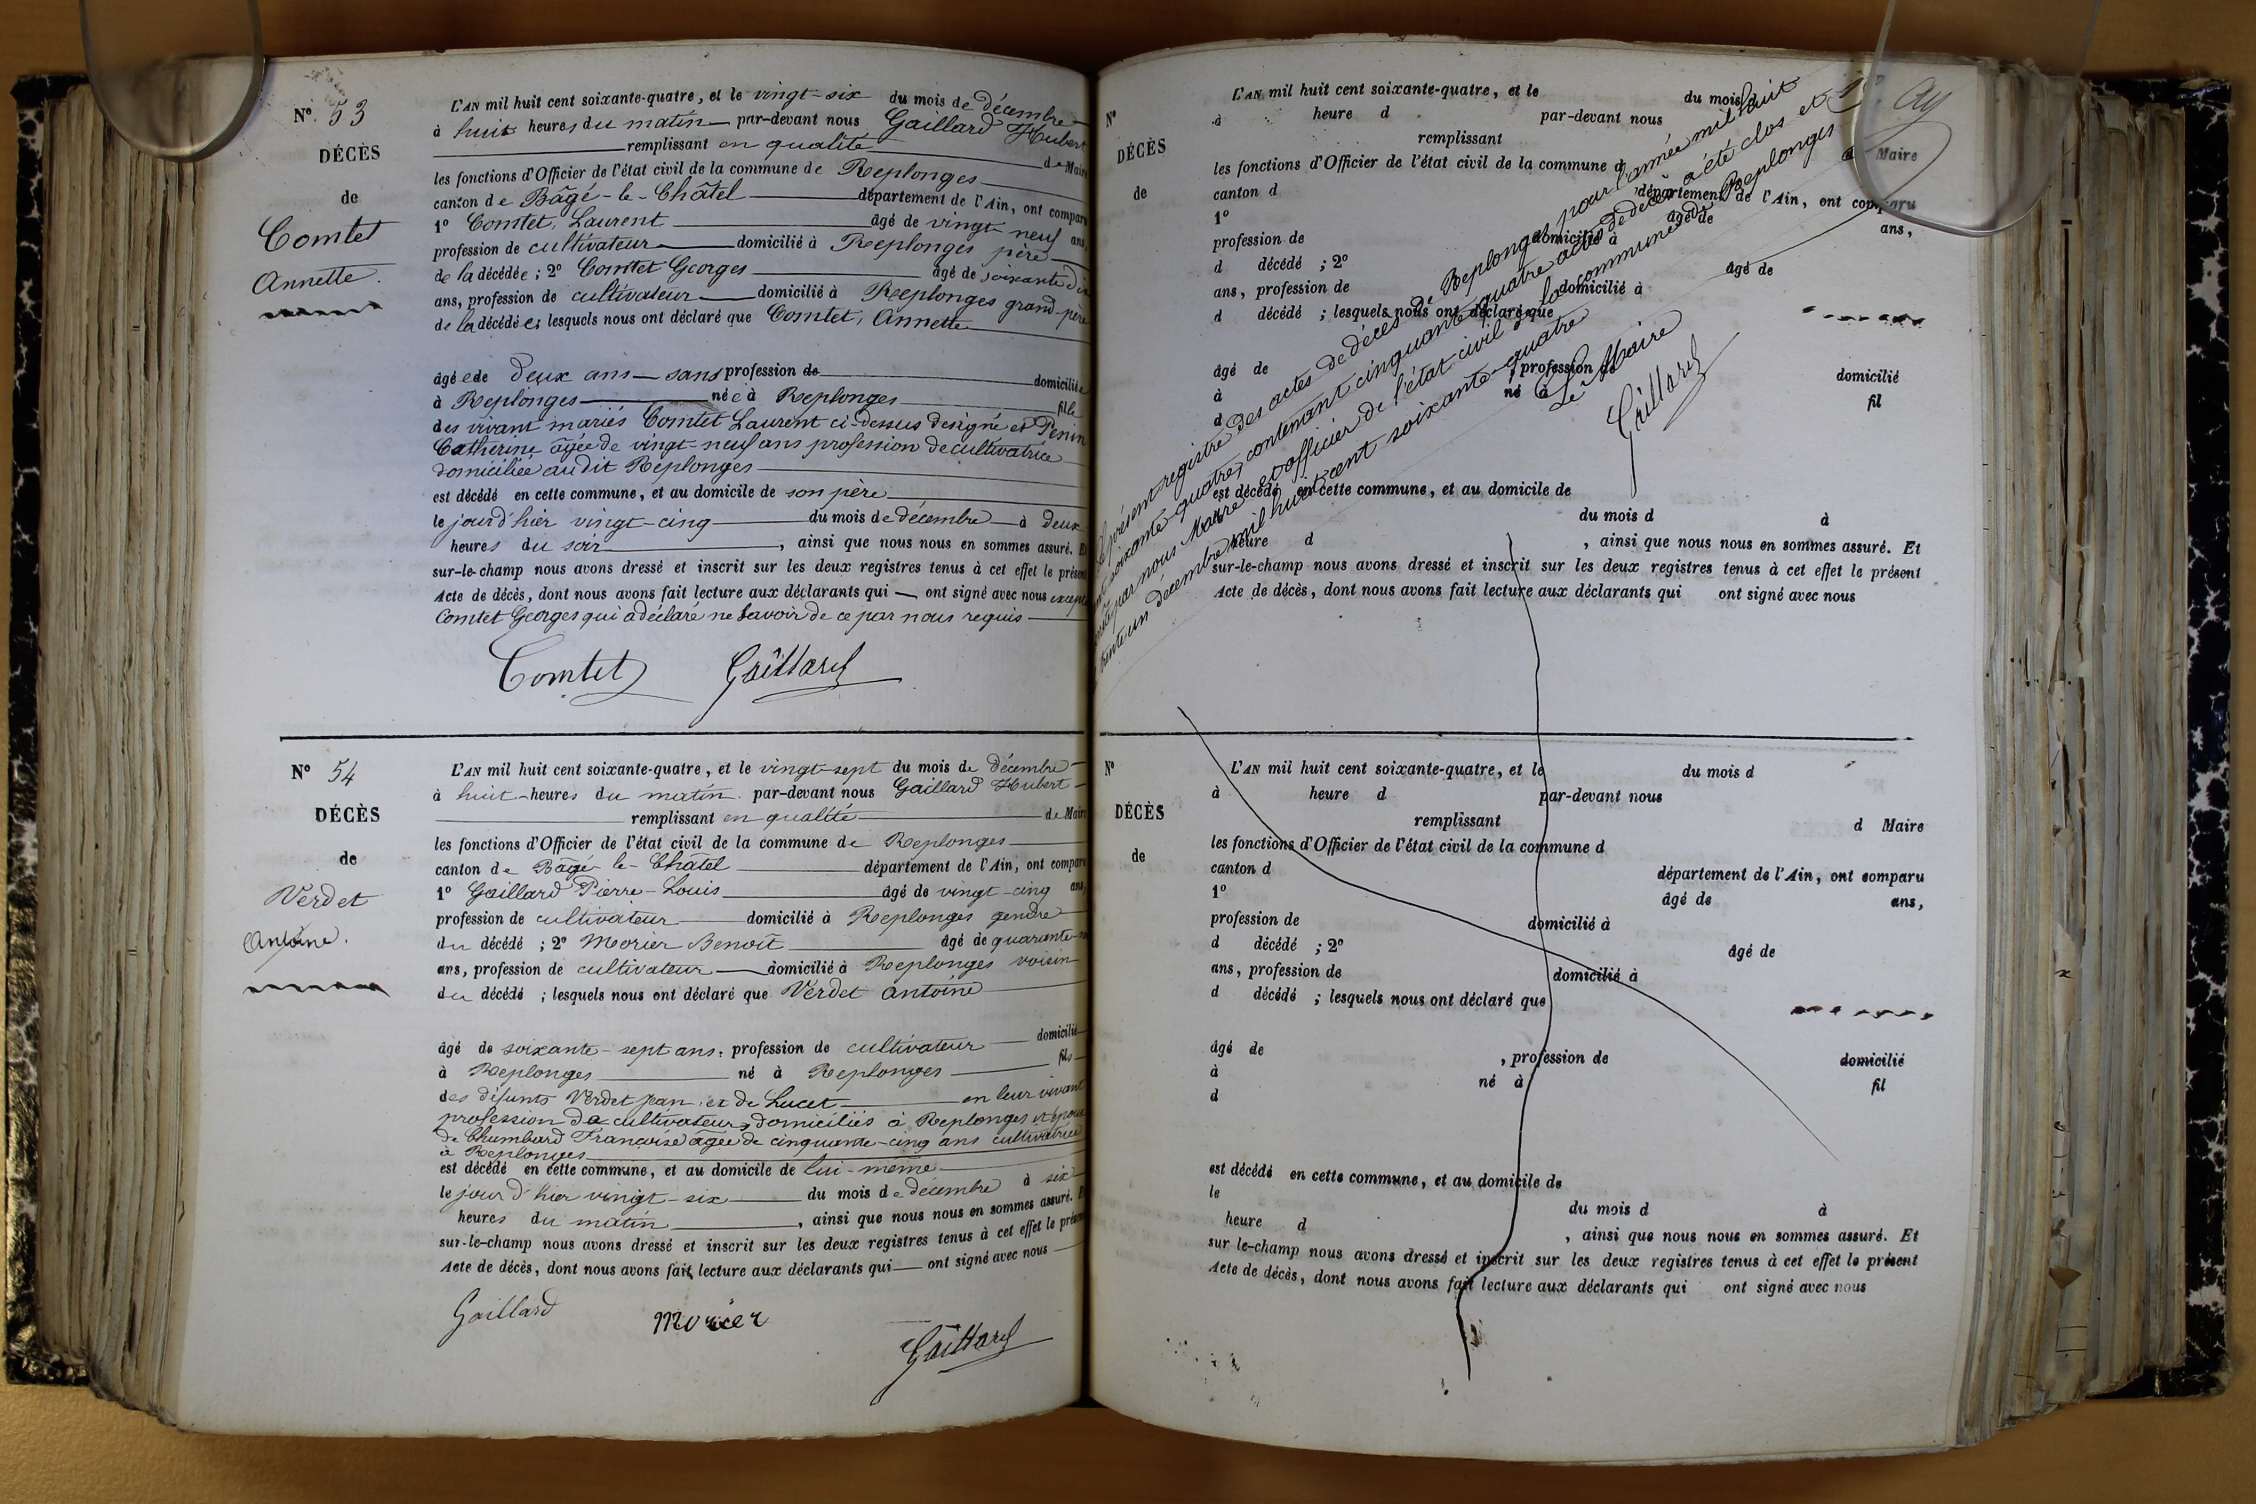 N° 53
DÉCÈS
de
Comtet
Annette.
L'AN mil huit cent soixante-quatre, et le vingt-six du mois de décembre
à huit heures du matin par-devant nous Gaillard Hubert
remplissant en qualité de Maire
les fonctions d'Officier de l'état civil de la commune de Replonges
canton de Bâgé-le-Châtel département de l'Ain, ont comparu
1° Comtet, Laurent âgé de vingt-neuf ans,
profession de cultivateur domicilié à Replonges père
de la décédée ; 2° Comtet Georges âgé de soixante dix
ans, profession de cultivateur domicilié à Replonges grand-père
de la décédée; lesquels nous ont déclaré que Comtet, Annette
âgée de deux ans sans profession de domiciliée
à Replonges née à Replonges fille
des vivant mariés Comtet Laurent ci-dessus designé et Penin
Catherine âgée de vingt-neuf ans profession de cultivatrice
domiciliée audit Replonges
est décédé en cette commune, et au domicile de son père
le jourd'hier vingt-cinq du mois de décembre à deux
heures du soir, ainsi que nous nous en sommes assuré. Et
sur-le-champ nous avons dressé et inscrit sur les deux registres tenus à cet effet le présent
Acte de décès, dont nous avons fait lecture aux déclarants qui ont signé avec nous excepté
Comtet Georges qui a déclaré ne savoir de ce par nous requis
Comtet Gaillard
N° 54
DÉCÈS
de
Verdet
Antoine.
L'AN mil huit cent soixante-quatre, et le vingt-sept du mois de décembre
à huit heures du matin par-devant nous Gaillard Hubert
remplissant en qualité de Maire
les fonctions d'Officier de l'état civil de la commune de Replonges
canton de Bâgé-le-Châtel département de l'Ain, ont comparu
1° Gaillard Pierre-Louis âgé de vingt-cinq ans,
profession de cultivateur domicilié à Replonges gendre
du décédé ; 2° Morier Benoît âgé de quarante
ans, profession de cultivateur domicilié à Replonges voisin
du décédé ; lesquels nous ont déclaré que Verdet Antoine
âgé de soixante-sept ans, profession de cultivateur domicilié
à Replonges né à Replonges fils
des défunts Verdet Jean et de Lucet en leur vivant
profession de cultivateurs domiciliés à Replonges et époux
de Chumbard Françoise âgée de cinquante-cinq ans cultivatrice
à Replonges
est décédé en cette commune, et au domicile de lui-même
le jourd'hier vingt-six du mois de décembre à six
heures du matin, ainsi que nous nous en sommes assuré. Et
sur-le-champ nous avons dressé et inscrit sur les deux registres tenus à cet effet le présent
Acte de décès, dont nous avons fait lecture aux déclarants qui ont signé avec nous
Gaillard morier Gaillard
N°
DÉCÈS
de
L'AN mil huit cent soixante-quatre, et le du mois d
à heure d par-devant nous
remplissant d Maire
les fonctions d'Officier de l'état civil de la commune d
canton d département de l'Ain, ont comparu
1° âgé de ans,
profession de domicilié à
d décédé ; 2° âgé de
ans, profession de domicilié à
d décédé ; lesquels nous ont déclaré que
âgé de , profession de domicilié
à né à fil
d
est décédé en cette commune, et au domicile de
du mois d à
heure d , ainsi que nous nous en sommes assuré. Et
sur-le-champ nous avons dressé et inscrit sur les deux registres tenus à cet effet le présent
Acte de décès, dont nous avons fait lecture aux déclarants qui ont signé avec nous
Le présent registre des actes de décès de Replonges pour l'année mil huit
cent soixante-quatre, contenant cinquante quatre actes de décès a été clos et
par nous Maire et officier de l'état civil de la commune de Replonges
trente un décembre mil huit cent soixante-quatre
Le Maire
Gaillard
N°
DÉCÈS
de
L'AN mil huit cent soixante-quatre, et le du mois d
à heure d par-devant nous
remplissant d Maire
les fonctions d'Officier de l'état civil de la commune d
canton d département de l'Ain, ont comparu
1° âgé de ans,
profession de domicilié à
d décédé ; 2° âgé de
ans, profession de domicilié à
d décédé ; lesquels nous ont déclaré que
âgé de , profession de domicilié
à né à fil
d
est décédé en cette commune, et au domicile de
le du mois d à
heure d , ainsi que nous nous en sommes assuré. Et
sur le-champ nous avons dressé et inscrit sur les deux registres tenus à cet effet le présent
Acte de décès, dont nous avons fait lecture aux déclarants qui ont signé avec nous